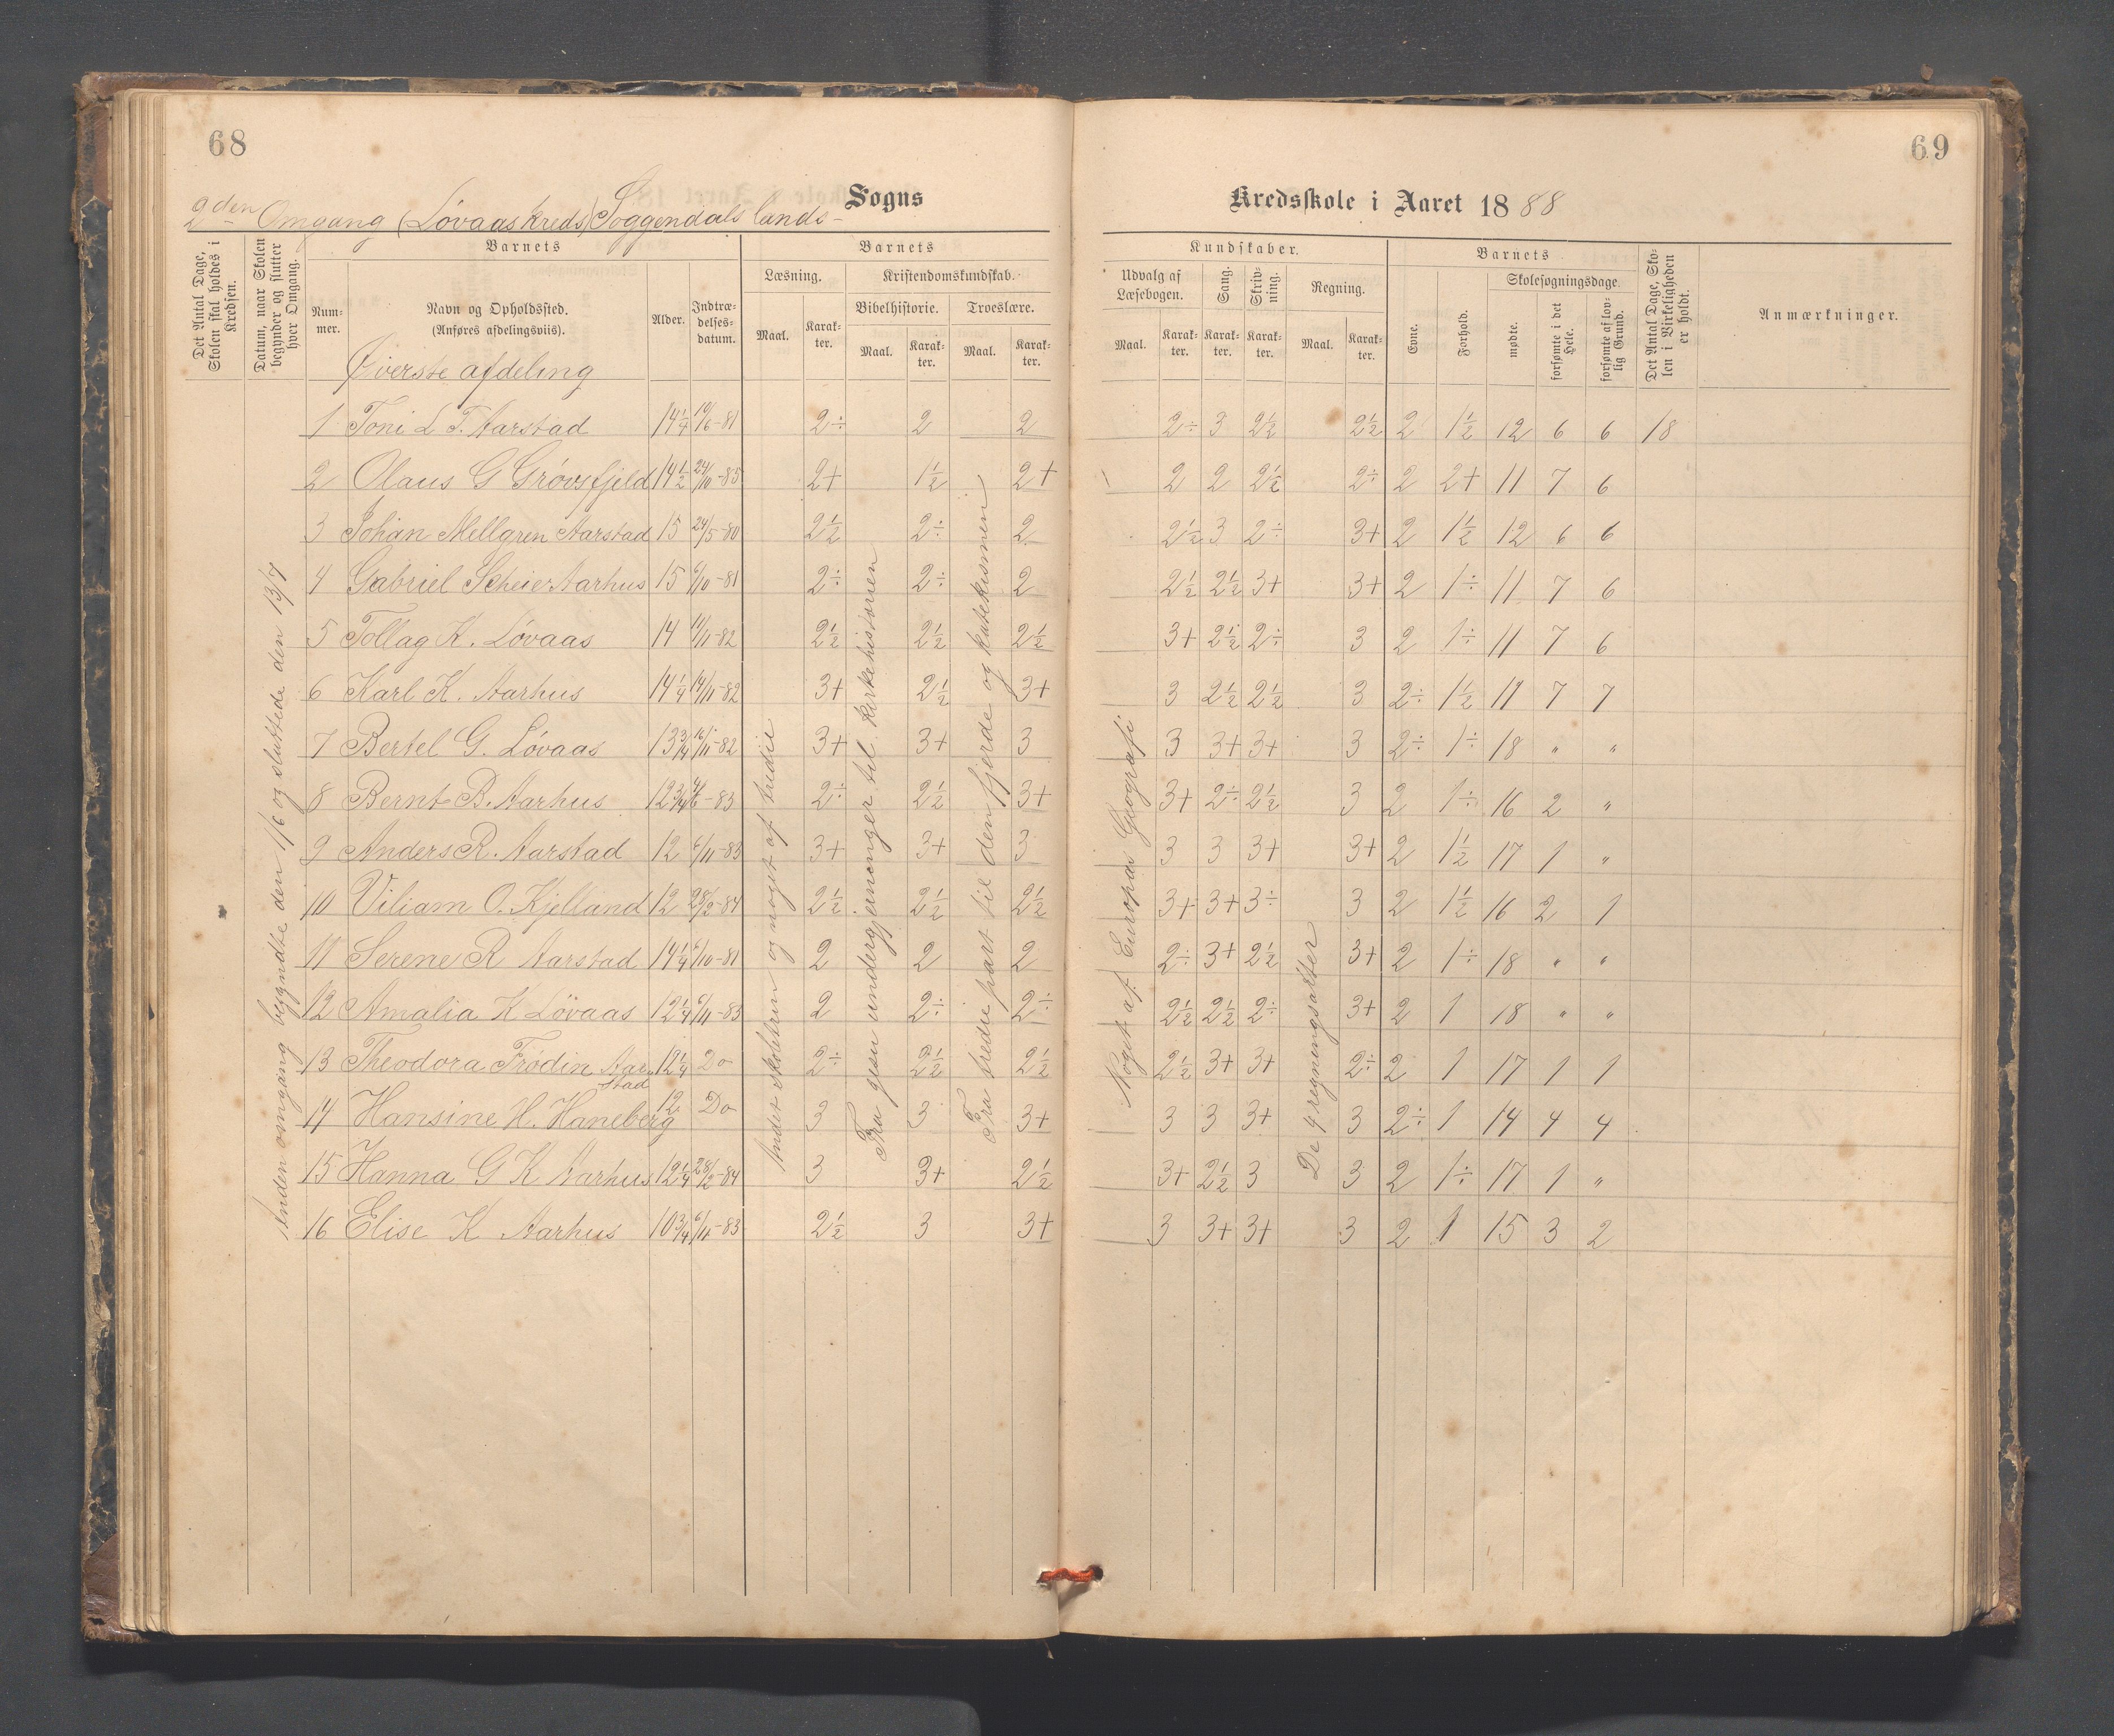 68
69
2den Omgang (Løvaas kreds) Soggendals lands- Sogns
Kredsskole i Aaret 1888
Det Antal Dage, Skolen skal holdes i Kredsen.
Datum, naar Skolen begynder og slutter hver Omgang.
Barnets
Nummer.
Navn og Opholdssted. (Anføres afdelingsviis).
Alder.
Indtrædelses-datum.
Barnets
Læsning.
Maal.
Karakter.
Kristendomskundskab.
Bibelhistorie.
Maal.
Karakter.
Troeslære.
Maal.
Karakter.
Kundskaber.
Udvalg af Læsebogen.
Maal.
Karakter.
Sang.
Karakter.
Skrivning.
Karakter.
Regning.
Maal.
Karakter.
Barnets
Evne.
Forhold.
Skolesøgningsdage.
mødte.
forsømte i det Hele.
forsømte af lovlig Grund.
Det Antal Dage, Skolen i Virkeligheden er holdt.
Anmærkninger.
Øverste afdeling
1 Toni L T. Aarstad 14 1/4 10/6-81 2÷ 2 2 2÷ 3 2 1/2 2 1/2 2 1 1/2 12 6 6 18
2 Olaus G Grøvsfjeld 14 1/2 24/10-85 2+ 1 1/2 2+ 2 2 2 1/2 2÷ 2 2+ 11 7 6
3 Johan Mellgren Aarstad 15 24/5-80 2 1/2 2÷ 2 2 1/2 3 2÷ 3+ 2 1 1/2 12 6 6
4 Gabriel Scheie Aarhus 15 6/10-81 2÷ 2÷ 2 2 1/2 2 1/2 3+ 3+ 2 1÷ 11 7 6
5 Tollag K. Løvaas 14 11/11-82 2 1/2 2 1/2 2 1/2 3+ 2 1/2 2÷ 3 2 1÷ 11 7 6
6 Karl K. Aarhus 14 1/4 14/11-82 3+ 2 1/2 3+ 3 2 1/2 2 1/2 3 2÷ 1 1/2 11 7 7
7 Bertel G. Løvaas 13 3/4 16/11-82 3+ 3+ 3 3 3+ 3+ 3 2÷ 1÷ 18 " "
8 Bernt B. Aarhus 12 3/4 4/6-83 2÷ 2 1/2 3+ 3+ 2÷ 2 1/2 3 2 1÷ 16 2 "
9 Anders R. Aarstad 12 6/11-83 3+ 3+ 3 3 3 3+ 3+ 2 1 1/2 17 1 "
10 Viliam O. Kjelland 12 28/2-84 2 1/2 2 1/2 2 1/2 3+ 3+ 3÷ 3 2 1 1/2 16 2 1
11 Serene R Aarstad 14 1/4 6/10-81 2 2 2 2÷ 3+ 2 1/2 3+ 2 1÷ 18 " "
12 Amalia K Løvaas 12 1/4 6/11-83 2 2÷ 2÷ 2 1/2 2 1/2 2÷ 3+ 2 1 18 " "
13 Theodora Frødin Aarstad 12 1/4 Do 2÷ 2 1/2 2 1/2 2 1/2 3+ 3+ 2÷ 2 1 17 1 1
14 Hansine H. Haneberg 12 Do 3 3 3+ 3 3 3+ 3 2÷ 1 14 4 4
15 Hanna G K Aarhus 12 1/4 28/2-84 3 3+ 2 1/2 3+ 2 1/2 3 3 2 1÷ 17 1 "
16 Elise K Aarhus 10 3/4 6/11-83 2 1/2 3 3+ 3 3+ 3+ 3 2 1 15 3 2
Anden omgang begyndte den 1/6 og sluttede den 13/7
Andet skoletrin og noget af tredie
Fra Jesu undergjerninger til kirkehistorien
Fra tredie part til den fjerde og katekismen
Noget af Europas Geografi
De 4 regningsarter